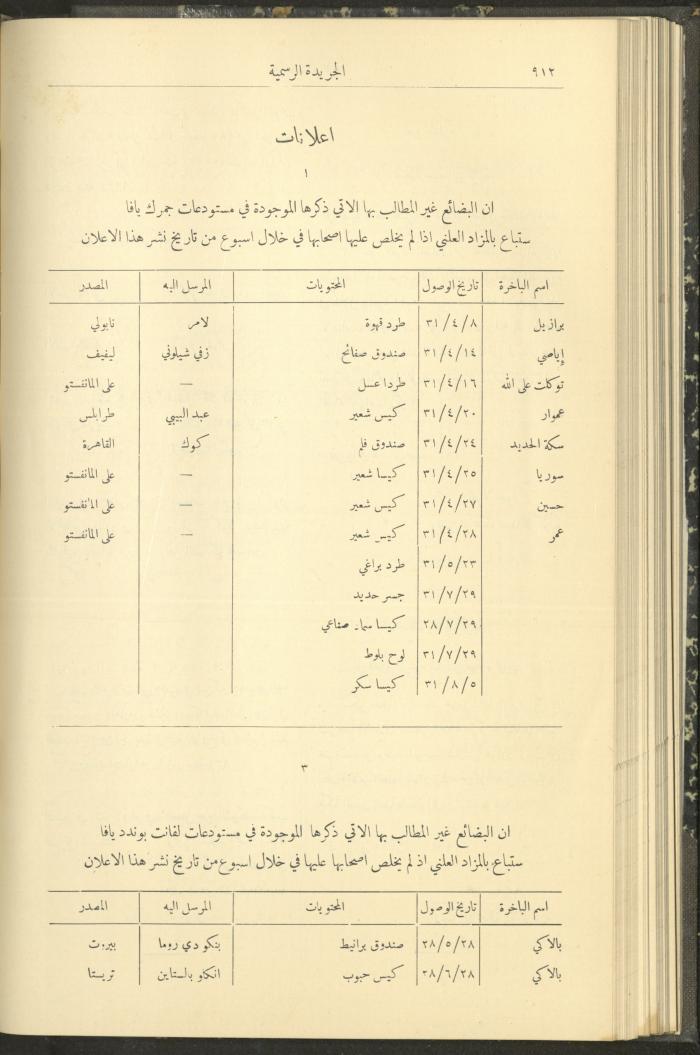 ٩١٢ الجريدة الرسمية
اعلانات
١
ان البضائع غير المطالب بها الاتي ذكرها الموجودة في مستودعات جمرك يافا
ستباع بالمزاد العلني اذا لم يخلص عليها اصحابها في خلال اسبوع من تاريخ نشر هذا الاعلان
اسم الباخرة تاريخ الوصول المحتويات المرسل اليه المصدر
برازيل ٣١/٤/٨ طرد قهوة لامر نابولي
إياصي ٣١/٤/١٤ صندوق صفائح زفي شيلوني ليفيف
توكلت على الله ٣١/٤/١٦ طردا عسل — على المانفستو
عموار ٣١/٤/٢٠ كيس شعير عبد البيبي طرابلس
سكة الحديد ٣١/٤/٢٤ صندوق فلم كوك القاهرة
سوريا ٣١/٤/٢٥ كيسا شعير — على المانفستو
حسين ٣١/٤/٢٧ كيس شعير — على المانفستو
عمر ٣١/٤/٢٨ كيس شعير — على المانفستو
٣١/٥/٢٣ طرد براغي
٣١/٧/٢٩ جسر حديد
٢٨/٧/٢٩ كيسا سماد صناعي
٣١/٧/٢٩ لوح بلوط
٣١/٨/٥ كيسا سكر
٣
ان البضائع غير المطالب بها الاتي ذكرها الموجودة في مستودعات لفانت بوندد يافا
ستباع بالمزاد العلني اذ لم يخلص اصحابها عليها في خلال اسبوع من تاريخ نشر هذا الاعلان
اسم الباخرة تاريخ الوصول المحتويات المرسل اليه المصدر
بالاكي ٢٨/٥/٢٨ صندوق برانيط بنكو دي روما بيروت
بالاكي ٢٨/٦/٢٨ كيس حبوب انكلو بالستاين تريستا